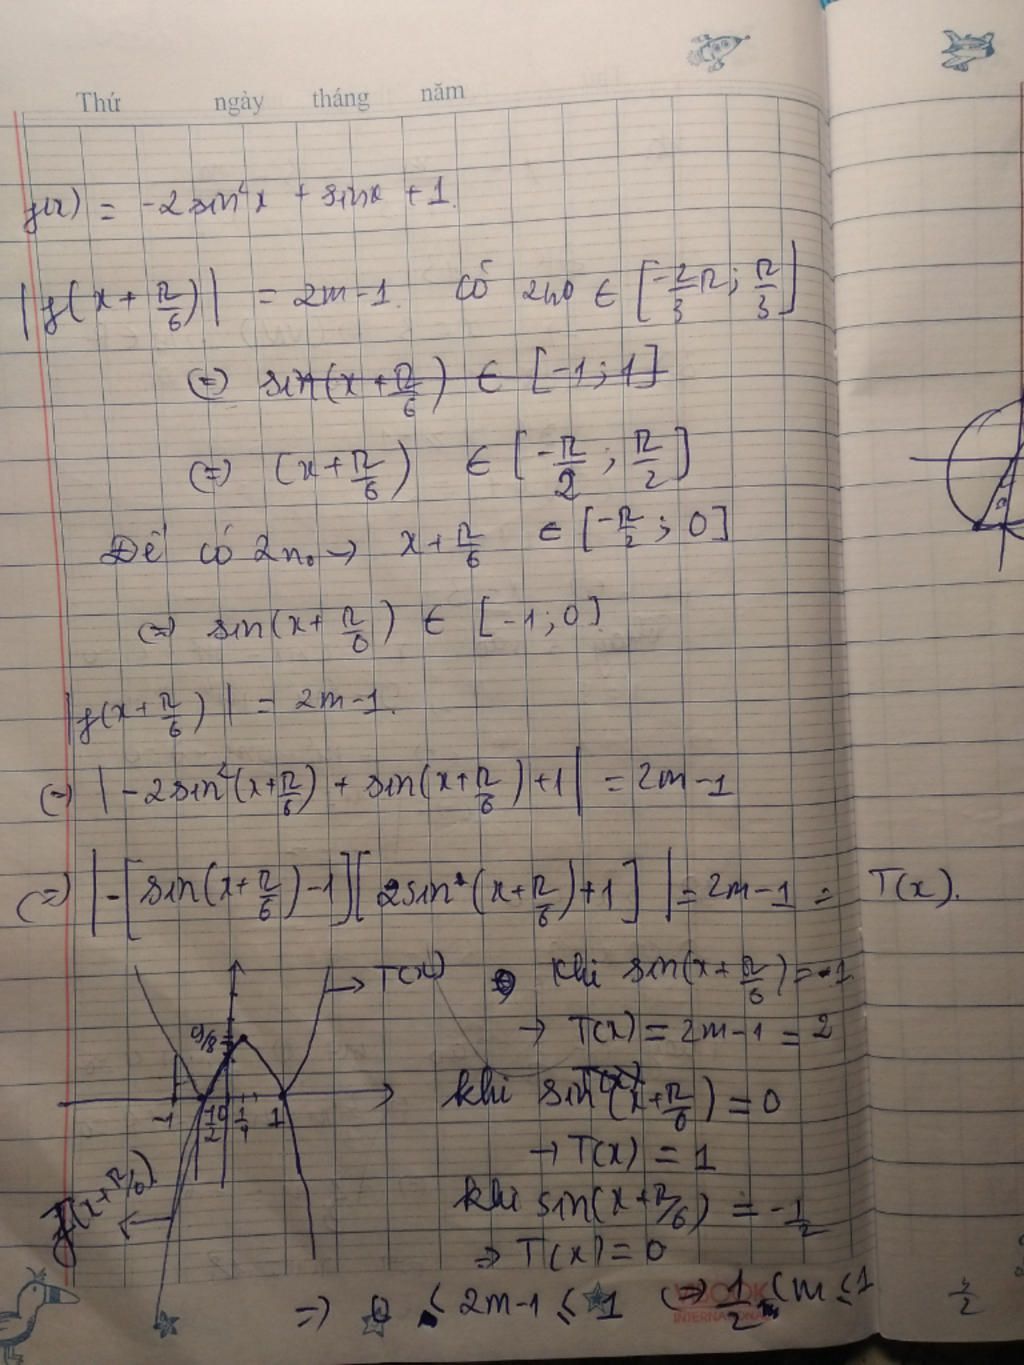 Thứ ngày tháng năm
f(x) = -2sin²x + sinx + 1.
|f(x + π/6)| = 2m-1. có 2no ∈ [-2/3π; π/3]
(=) sin(x + π/6) ∈ [-1; 1]
(=) (x + π/6) ∈ [-π/2; π/2]
Để có 2no → x + π/6 ∈ [-π/2; 0]
(=) sin(x + π/6) ∈ [-1; 0]
|f(x + π/6)| = 2m-1.
(=) |-2sin²(x + π/6) + sin(x + π/6) + 1| = 2m-1
(=) |-[sin(x + π/6) - 1][2sin(x + π/6) + 1]| = 2m-1 = T(x).
→ T(x)
khi sin(x + π/6) = -1
→ T(x) = 2m-1 = 2
9/8
khi sin(x + π/6) = 0
-1 1/4 1
→ T(x) = 1
f(x + π/6)
khi sin(x + π/6) = -1/2
→ T(x) = 0
=> 0 < 2m-1 ≤ 1 (=) 1/2 < m ≤ 1
INTERNATIONAL